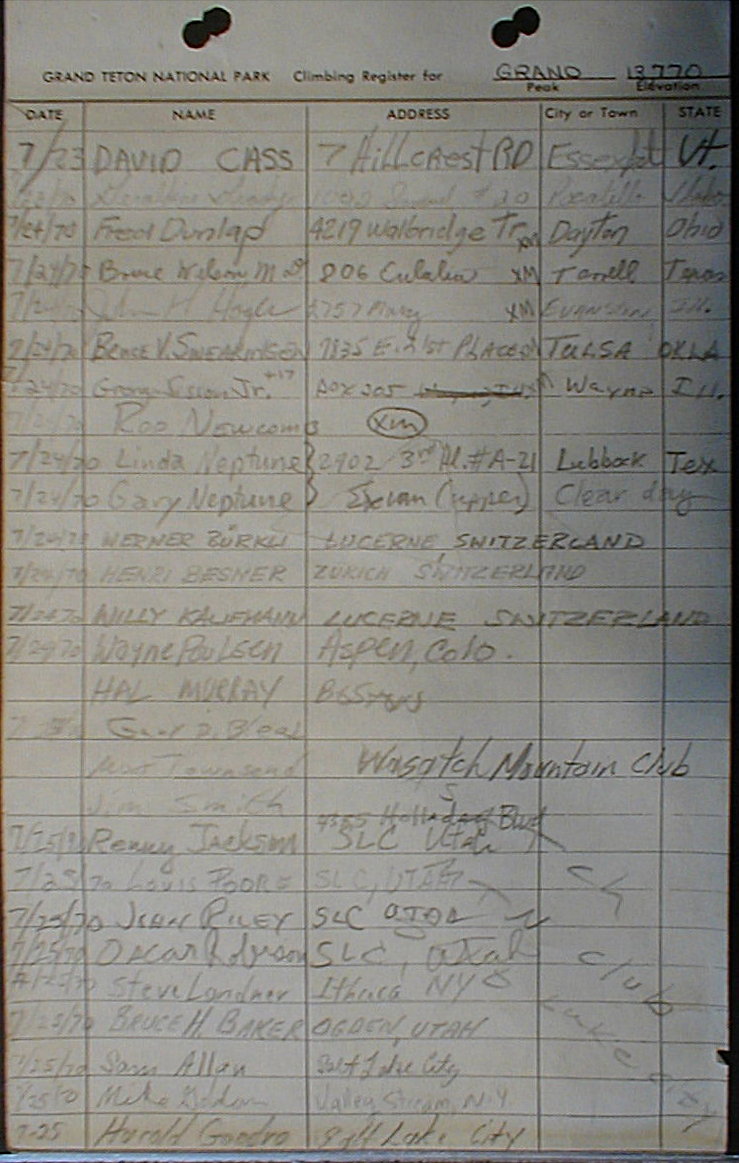 GRAND TETON NATIONAL PARK Climbing Register for GRAND 13,770
Peak Elevation
DATE NAME ADDRESS City or Town STATE
7/23 DAVID CASS 7 Hillcrest RD Essex Jct Vt.
Pocatello Idaho
7/24/70 Fred Dunlap 4219 Walbridge Tr. XM Dayton Ohio
7/24/70 Bruce Wilson 806 XM Terrell Texas
7/24/70 John H Hogle 2757 XM Evanston, Ill.
7/24/70 BRUCE V. SWEARINGEN 7835 E. 21st PLACE TULSA OKLA
7/24/70 George Sisson Jr. +17 Box 205 Wayne Ill.
7/24/70 Roo Newcomb XM
7/24/70 Linda Neptune } 2902 3rd Pl. #A-21 Lubbock Tex
7/24/70 Gary Neptune } Exum (upper) Clear day
7/24/70 WERNER BÜRKLI LUCERNE, SWITZERLAND
7/24/70 HENRI BESNER ZURICH SWITZERLAND
7/24/70 WILLY KAUFMANN LUCERNE SWITZERLAND
7/24/70 Wayne Poulsen Aspen, Colo.
HAL MURRAY
7
Townsend Wasatch Mountain Club
Jim Smith
4355 Holladay Blvd
7/25/70 Renny Jackson SLC Utah
7/25/70 Louis POORE SLC, UTAH
7/25/70 JEAN RILEY SLC UTAH
7/25/70 Oscar Robison SLC, Utah Club
7/25/70 Steve Landner Ithaca NY
7/25/70 BRUCE H. BAKER OGDEN, UTAH
7/25/70 Sam Allan Salt Lake City
7/25/70 Mike Valley Stream, N.Y. Lake City
7-25 Harold Goodro Salt Lake City